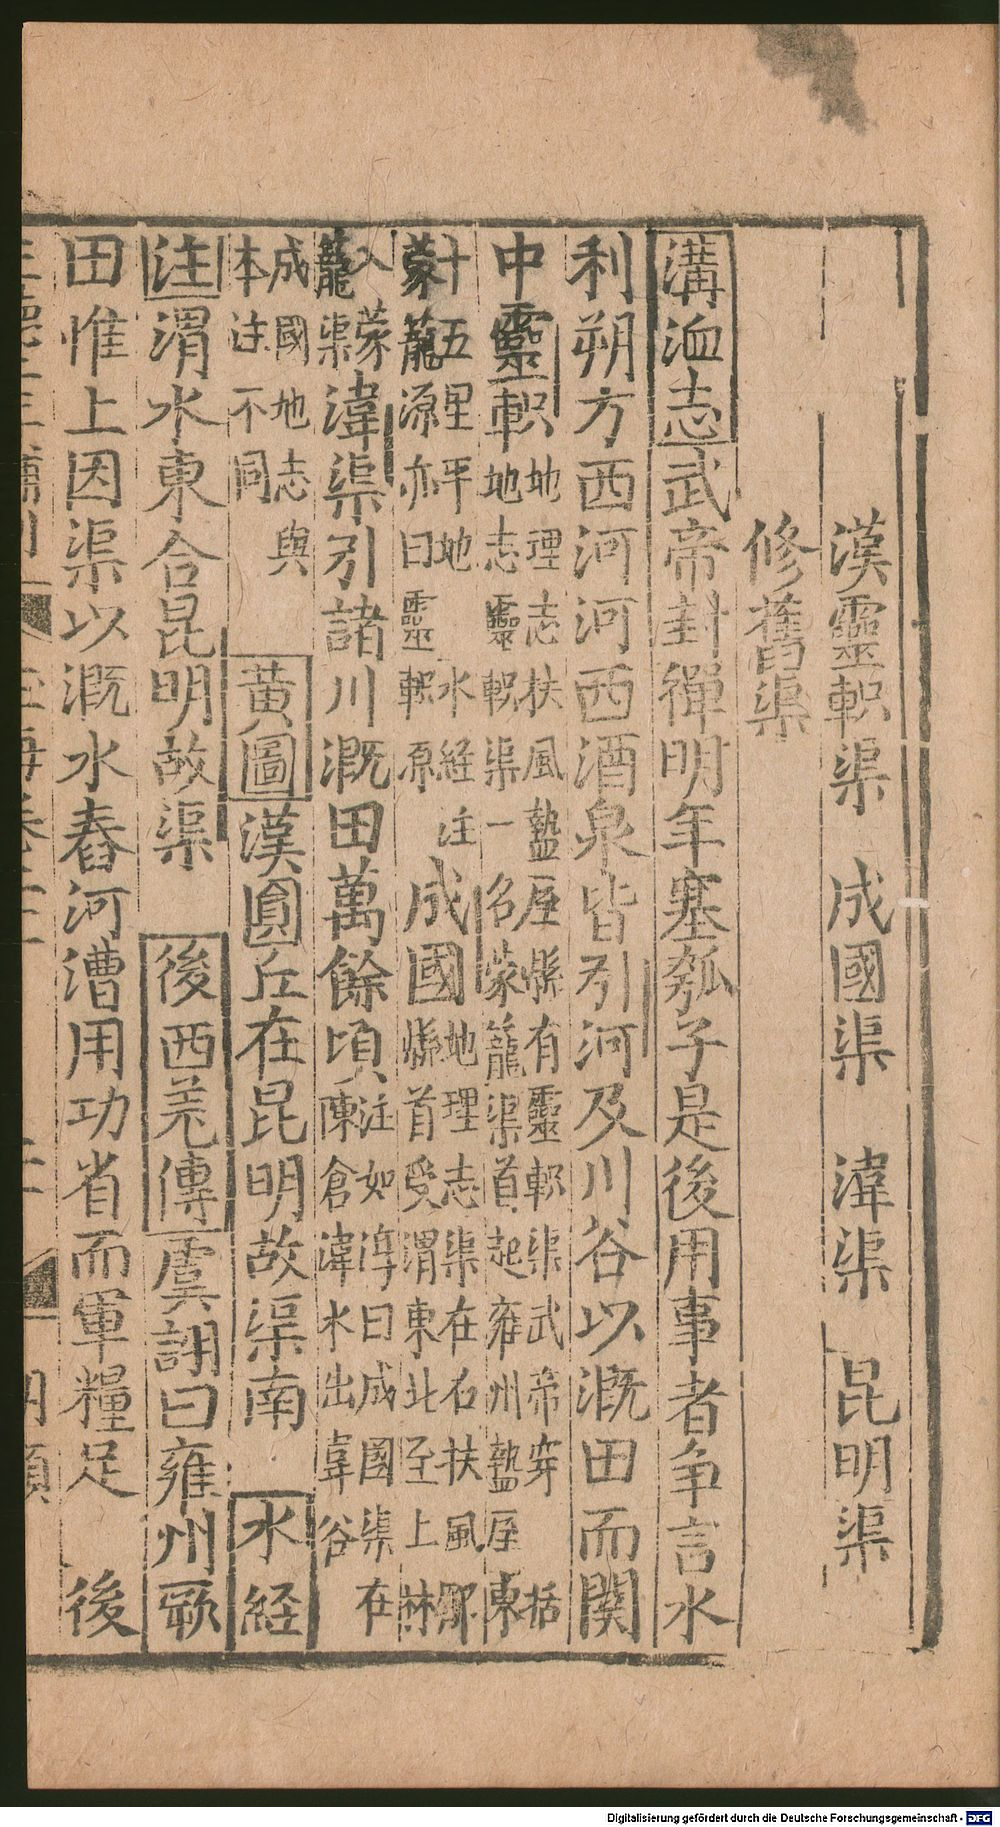 漢靈軹渠　成國渠　湋渠　昆明渠
修舊渠
溝洫志武帝封禪明年塞瓠子是後用事者争言水
利朔方西河河西酒泉皆引河及川谷以溉田而關
中靈軹地理志扶風盩厔縣有靈軹渠武帝穿　括
地志靈軹渠一名蒙籠渠首起雍州盩厔東
十五里平地　水経注
蒙籠源亦曰靈軹原
成國地理志渠在右扶風郿
縣首受渭東北至上林
入蒙
籠渠
湋渠引諸川溉田萬餘頃注如淳曰成國渠在
陳倉湋水出韋谷
成國地志與
本注不同
黄圖漢圓丘在昆明故渠南　水経
注渭水東合昆明故渠　後西羌傳虞詡曰雍州厥
田惟上因渠以溉水舂河漕用功省而軍糧足　後
Digitalisierung gefördert durch die Deutsche Forschungsgemeinschaft - DFG